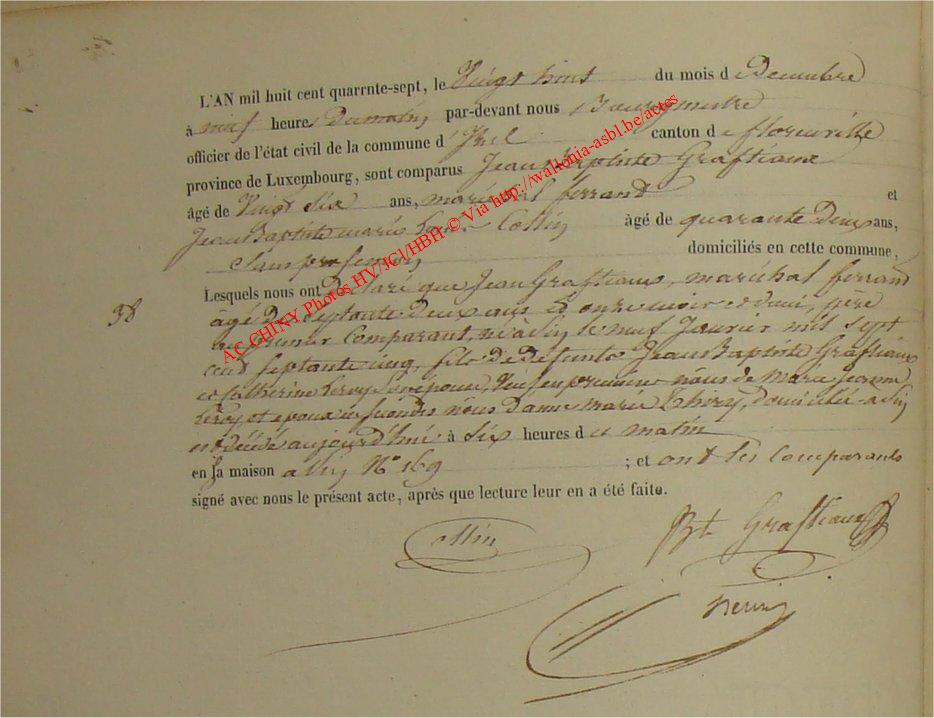 L'AN mil huit cent quarrnte-sept, le Vingt huit du mois d e Decembre
à neuf heures Du matin par-devant nous Bourgmestre
officier de l'état civil de la commune d' Izel canton d e florenville
province de Luxembourg, sont comparus Jean Baptiste Graftiaux
âgé de Vingt Six ans, maréchal ferrand et
Jean Baptiste marie Collin âgé de quarante Deux ans,
Sans profession domiciliés en cette commune,
Lesquels nous ont Déclaré que Jean Graftiaux, maréchal ferrand
38
âgé de Septante Deux ans et onze mois et demi, père
du premier Comparant, né à le neuf Janvier mil Sept
cent Septante cinq, fils de défunts Jean Baptiste Graftiaux
et Catherine Leroy Son épouse, Veuf en premières nous de Marie Jeanne
Leroy, et époux en Secondes nous D'anne marie Thiry, domicilié à
est décédé aujourd'hui à Six heures d u matin
en la maison a N° 169 ; et ont les Comparants
signé avec nous le présent acte, après que lecture leur en a été faite.
Collin
Bt Graftiaux
AC CHINY Photos HV/JCI/HBH © Via http://wallonia-asbl.be/actes